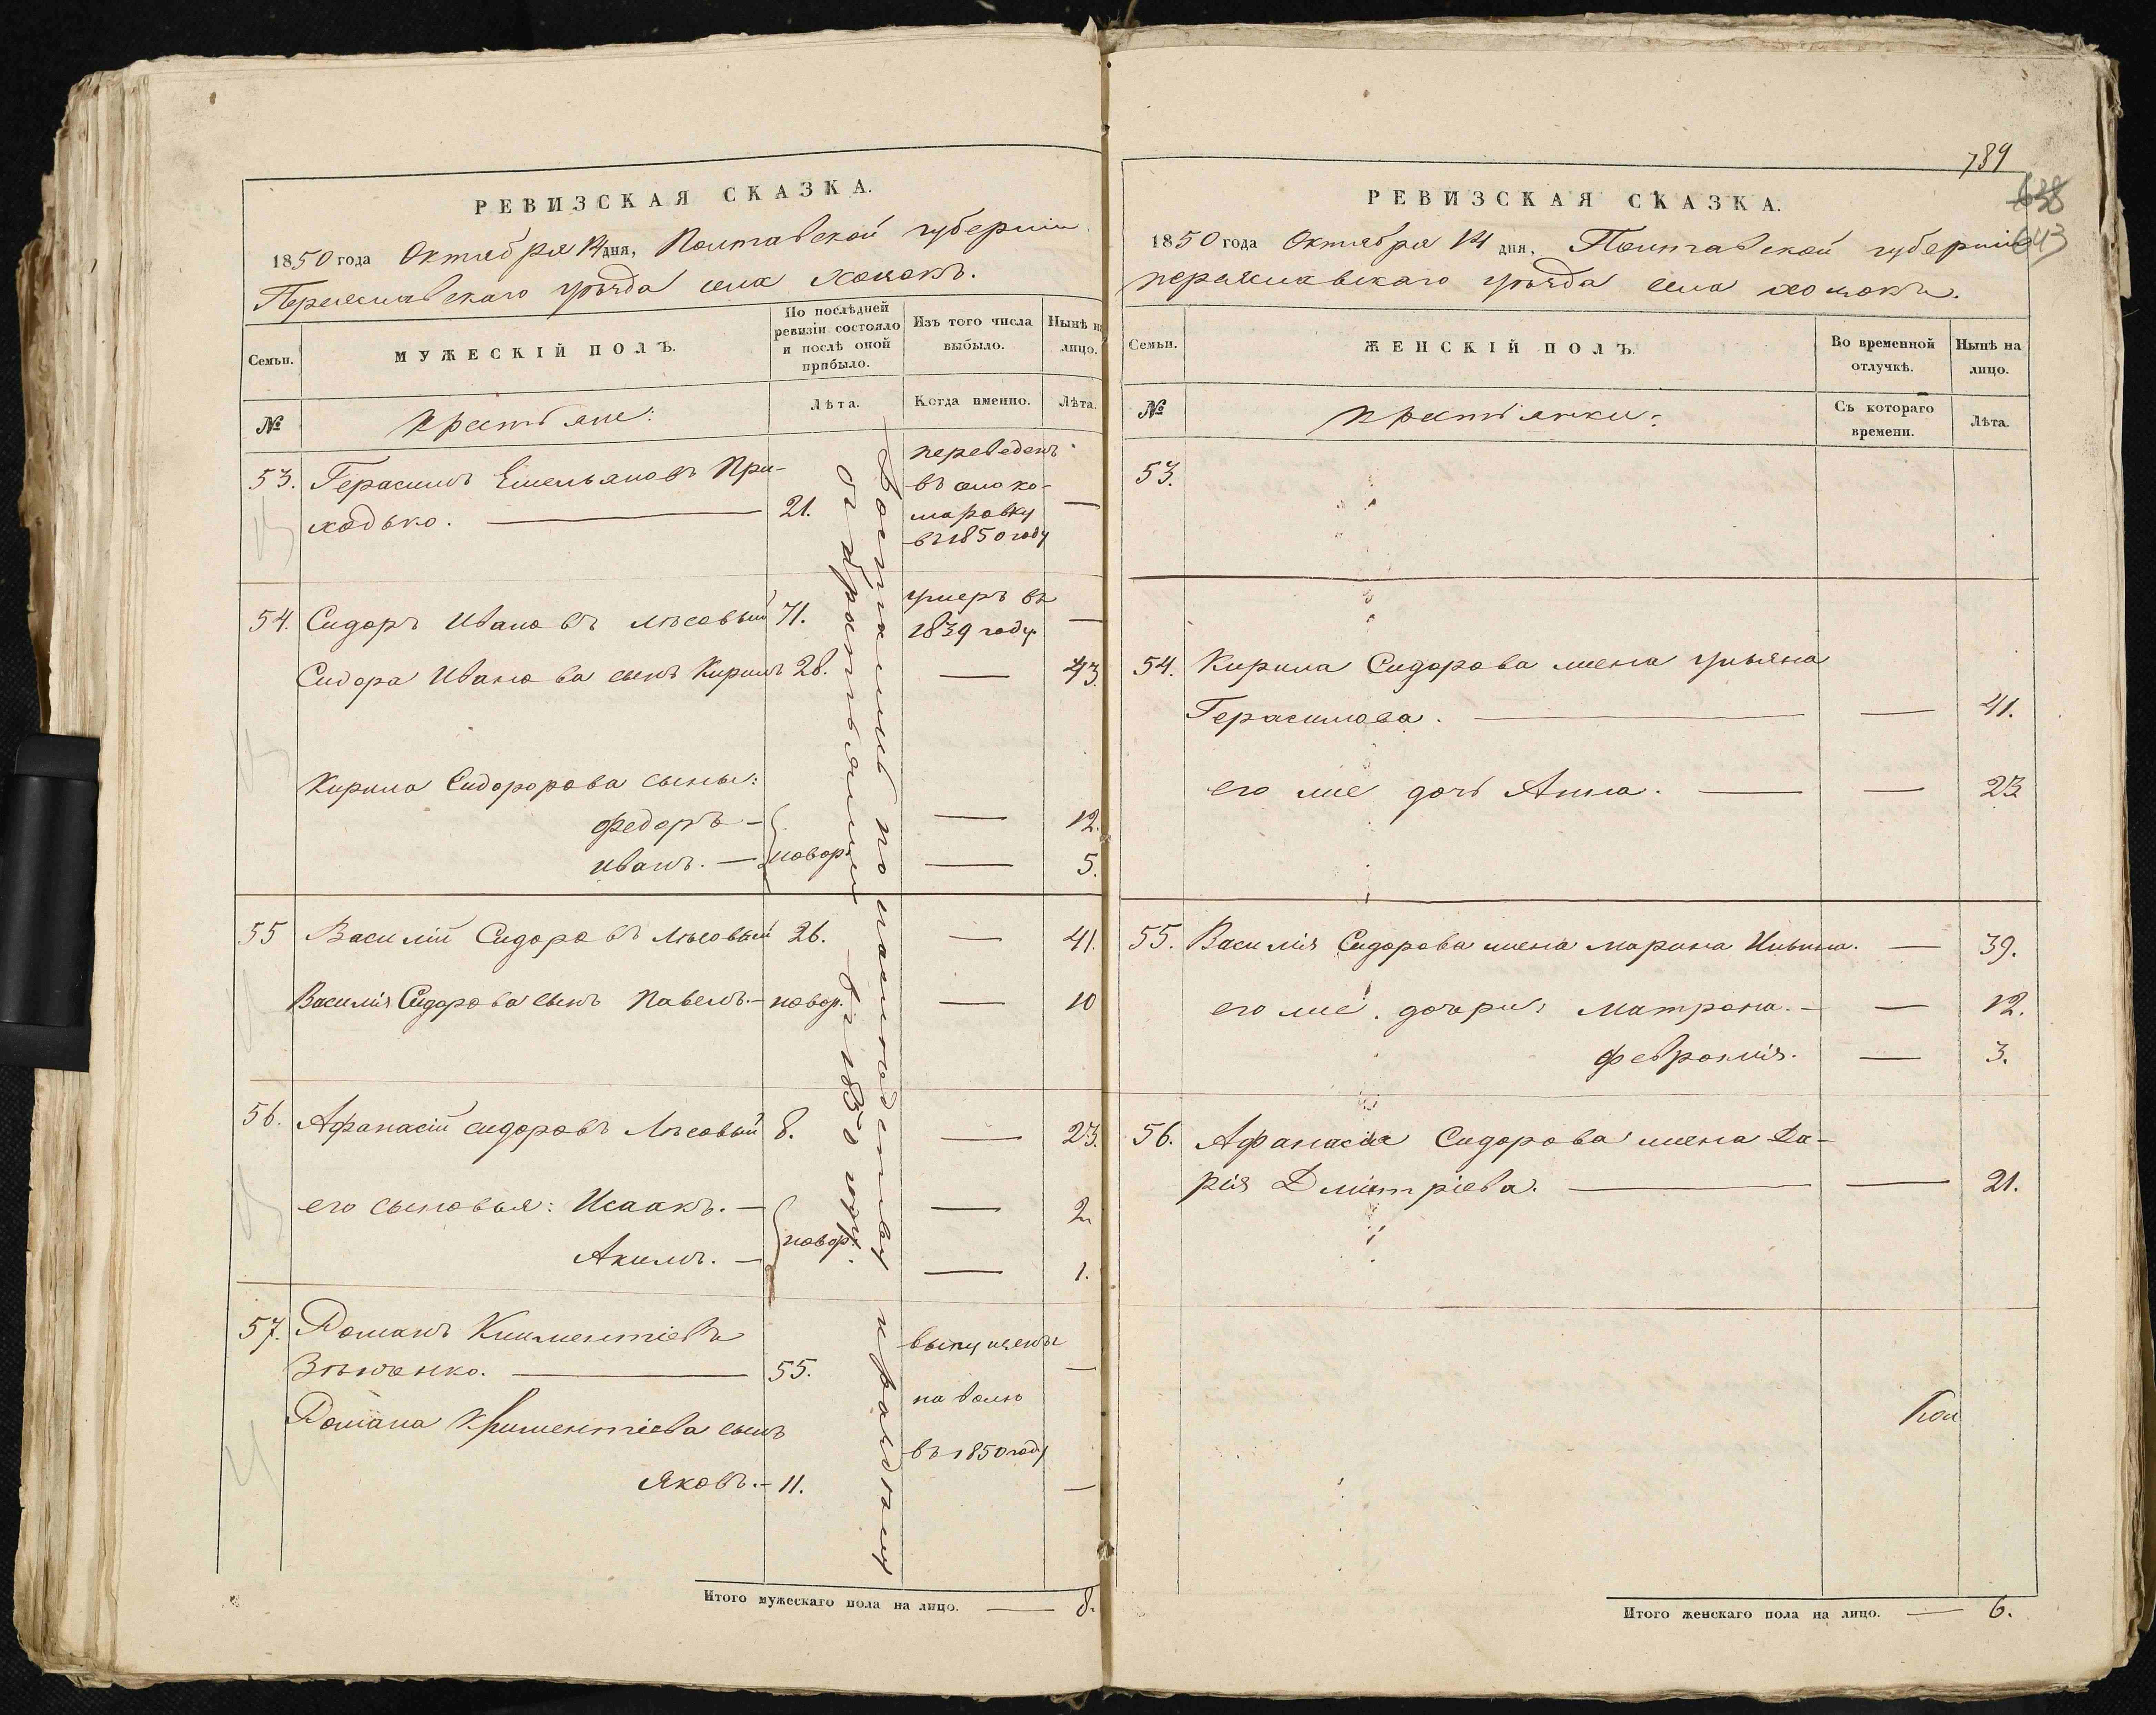 РЕВИЗСКАЯ СКАЗКА.
1850 года Октября 14 дня, Полтавской губерніи
Переяславскаго уѣзда села Хоцокъ.
Семьи.
МУЖЕСКІЙ ПОЛЪ.
По послѣдней
ревизіи состояло
и послѣ оной
прибыло.
Изъ того числа
выбыло.
Нынѣ на
лицо.
№
Крестьяне:
Лѣта.
Когда именно.
Лѣта.
53. Герасимъ Емельяновъ При-
ходько. — 21. —
переведенъ
въ село Ко-
маровку
въ 1850 году
54. Сидоръ Ивановъ Лѣсовый 71. —
умеръ въ
1839 году.
Сидора Иванова сынъ Кирилъ 28. — 43.
Кирила Сидоророва сыны:
Федоръ — — 12.
Иванъ. — новор. — 5.
55 Василій Сидоровъ Лѣсовый 26. — 41.
Василія Сидорова сынъ Павелъ. — новор. — 10
56. Афанасій Сидоровъ Лѣсовый 8. — 23.
его сыновья: Исаакъ. — — 2
новор.
Акимъ. — — 1.
57. Романъ Климентіевъ
Зѣнченко. — 55. —
Романа Климентіева сынъ
Яковъ. — 11. —
выпущены
на волю
въ 1850 году
Достались по наслѣдству
съ крестьянами въ 1850 году.
Итого мужескаго пола на лицо. — 8.
789
638
643
РЕВИЗСКАЯ СКАЗКА.
1850 года Октября 14 дня, Полтавской губерніи
Переяславскаго уѣзда села Хоцокъ.
Семьи.
ЖЕНСКІЙ ПОЛЪ.
Во временной
отлучкѣ.
Нынѣ на
лицо.
№
Крестьянки:
Съ котораго
времени.
Лѣта.
53.
54. Кирила Сидорова жена Ульяна
Герасимова. — — 41.
его же дочь Анна. — — 23
55. Василія Сидорова жена Марина Ильина. — 39.
его же дочери: Матрона. — — 12.
Февронія. — 3.
56. Афанасія Сидорова жена Да-
рія Дмитріева. — — 21.
Итого женскаго пола на лицо. — 6.